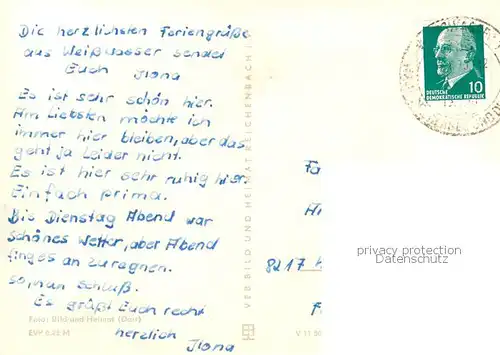 Die herzlichsten Feriengrüße
aus Weißwasser sendet
Euch Ilona
Es ist sehr schön hier.
Am Liebsten möchte ich
immer hier bleiben, aber das
geht ja Leider nicht.
Es ist hier sehr ruhig hier.
Einfach prima.
Bis Dienstag Abend war
schönes Wetter, aber Abend
finges an zuregnen.
so, nun Schluß.
Es grüßt Euch recht
herzlich Ilona
Foto: Bild und Heimat (Dost)
EVP 0,25 M
VEB BILD UND HEIMAT REICHENBACH I.
V 11 50
DEUTSCHE
DEMOKRATISCHE REPUBLIK
10
Fa
8217
privacy protection
DATENSCHUTZ